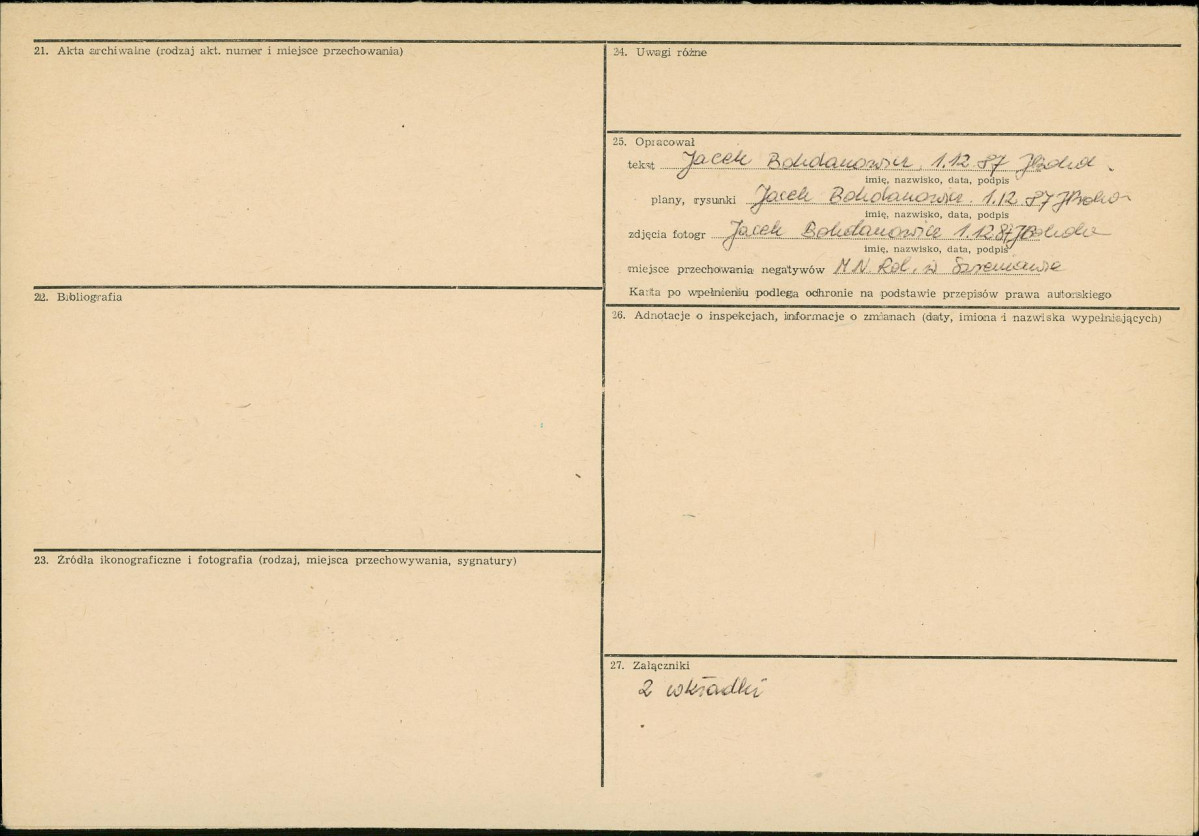 21. Akta archiwalne (rodzaj akt. numer i miejsce przechowania)
22. Bibliografia
23. Źródła ikonograficzne i fotografia (rodzaj, miejsca przechowywania, sygnatury)
24. Uwagi różne
25. Opracował
tekst Jacek Bohdanowicz 1.12.87
imię, nazwisko, data, podpis
plany, rysunki Jacek Bohdanowicz 1.12.87
imię, nazwisko, data, podpis
zdjęcia fotogr Jacek Bohdanowicz 1.12.87
imię, nazwisko, data, podpis
miejsce przechowania negatywów M.N. Rol. w Szreniawie
Karta po wpełnieniu podlega ochronie na podstawie przepisów prawa autorskiego
26. Adnotacje o inspekcjach, informacje o zmianach (daty, imiona i nazwiska wypełniających)
27. Załączniki
2 wkładki